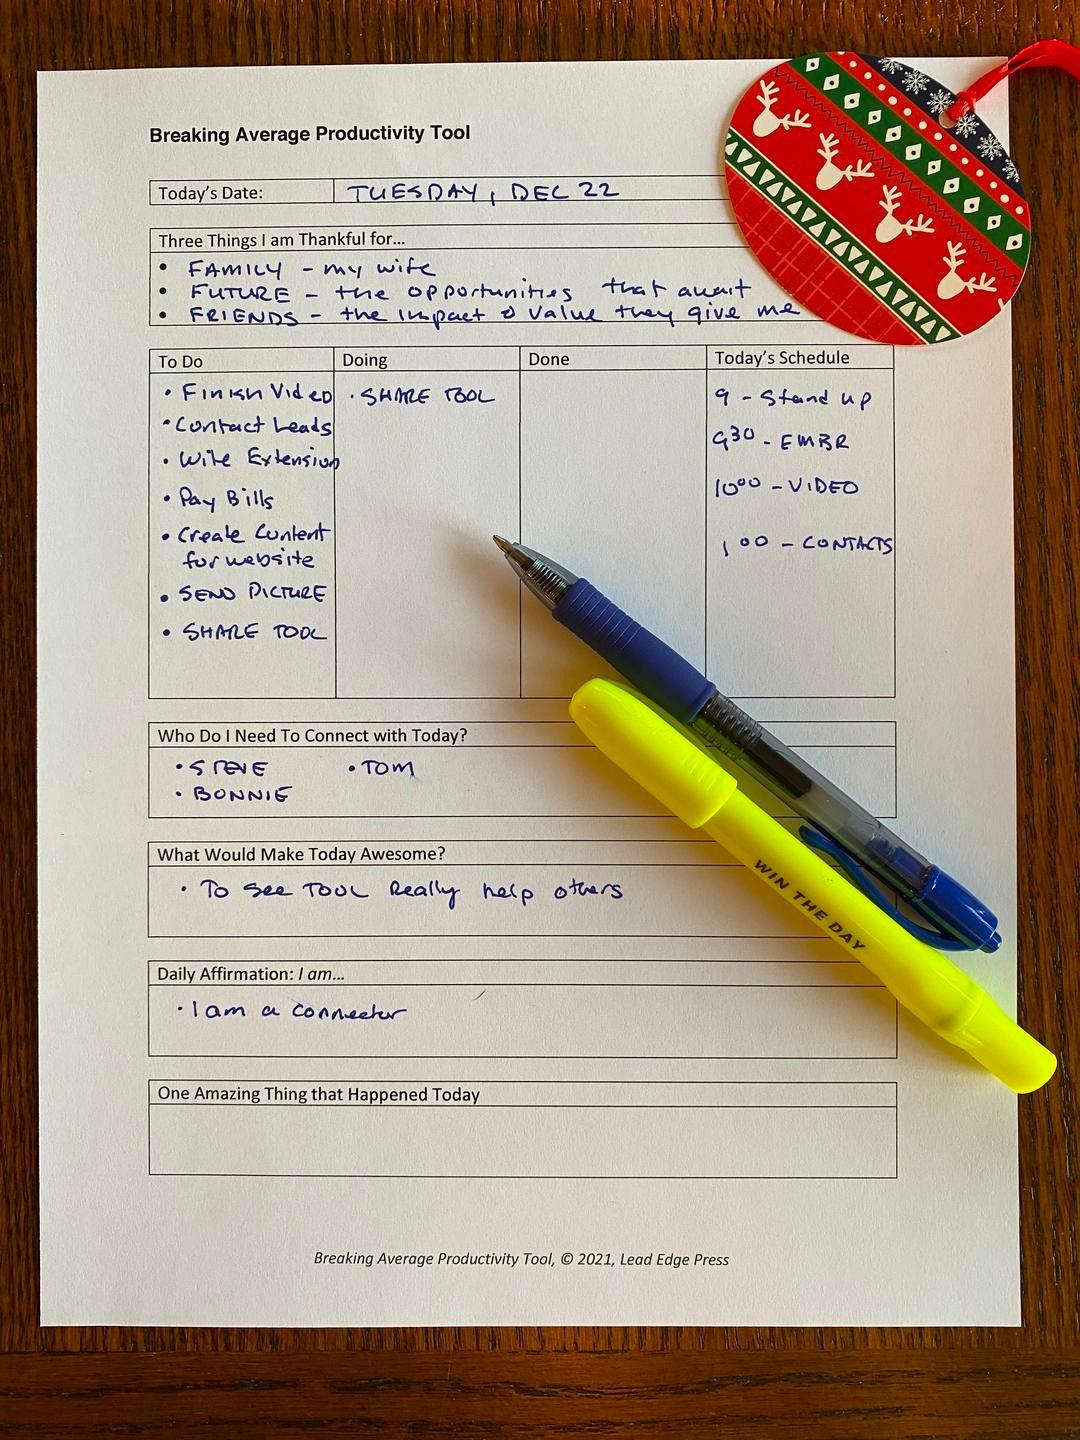 Breaking Average Productivity Tool
Today's Date: TUESDAY, DEC 22
Three Things I am Thankful for...
• FAMILY - my wife
• FUTURE - the opportunities that await
• FRIENDS - the impact & value they give me
To Do
• Finish Video
• Contact Leads
• Wite Extension
• Pay Bills
• Create Content
for website
• SEND PICTURE
• SHARE TOOL
Doing
• SHARE TOOL
Done
Today's Schedule
9 - Stand up
9³⁰ - EMBR
10⁰⁰ - VIDEO
1⁰⁰ - CONTACTS
Who Do I Need To Connect with Today?
• STEVE • TOM
• BONNIE
What Would Make Today Awesome?
• To see TOOL Really help others
Daily Affirmation: I am...
• I am a connector
One Amazing Thing that Happened Today
WIN THE DAY
Breaking Average Productivity Tool, © 2021, Lead Edge Press